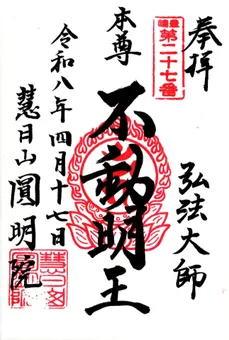 奉拝
第二十七番
弘法大師
本尊
不動明王
令和八年四月十七日
慧日山圓明院